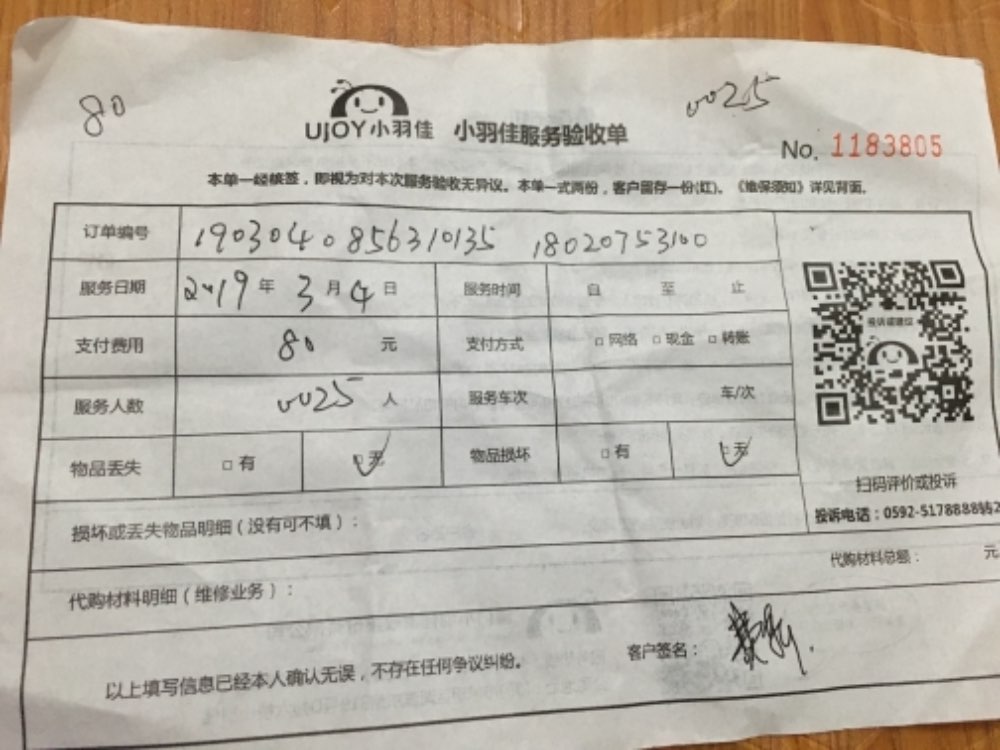 80
0025
UJOY小羽佳 小羽佳服务验收单
No. 1183805
本单一经核签，即视为对本次服务验收无异议。本单一式两份，客户留存一份(红)。《维保须知》详见背面。
订单编号 1903040856310135 18020753100
服务日期 2019年3月4日 服务时间 自 至 止
支付费用 80 元 支付方式 □网络 □现金 □转账
服务人数 0025 人 服务车次 车/次
物品丢失 □有 □无 物品损坏 □有 □无
投诉或建议
扫码评价或投诉
投诉电话：0592-5178888转2
损坏或丢失物品明细（没有可不填）：
代购材料总额： 元
代购材料明细（维修业务）：
客户签名：
以上填写信息已经本人确认无误，不存在任何争议纠纷。